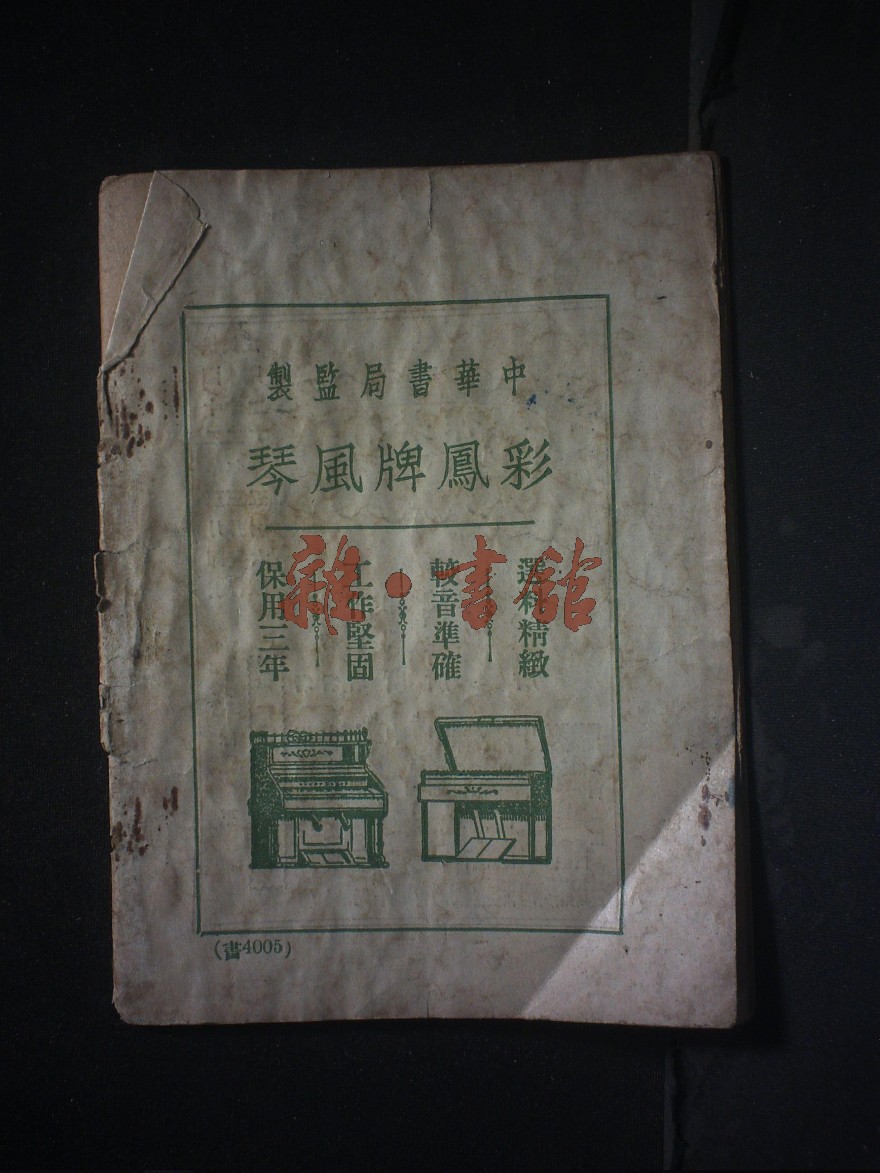 中華書局監製
彩鳳牌風琴
選料精緻
較音準確
工作堅固
保用三年
雜·書館
(書4005)